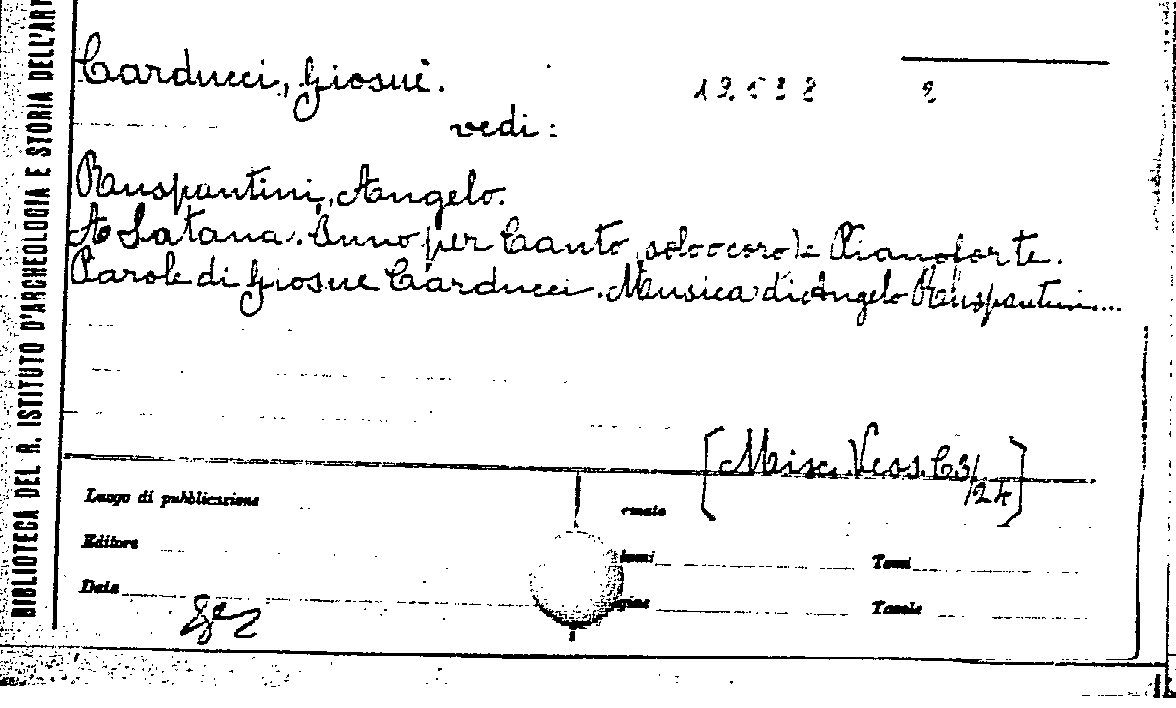 BIBLIOTECA DEL R. ISTITUTO D'ARCHEOLOGIA E STORIA DELL'ART
Carducci, Giosuè.
vedi:
Ruspantini, Angelo.
A Satana. Inno per Canto (solo o coro) e Pianoforte.
Parole di Giosue Carducci. Musica di Angelo Ruspantini....
[Misc. Vcos. C3/24]
Luogo di pubblicazione
Editore
Tomi
Data
Tavole